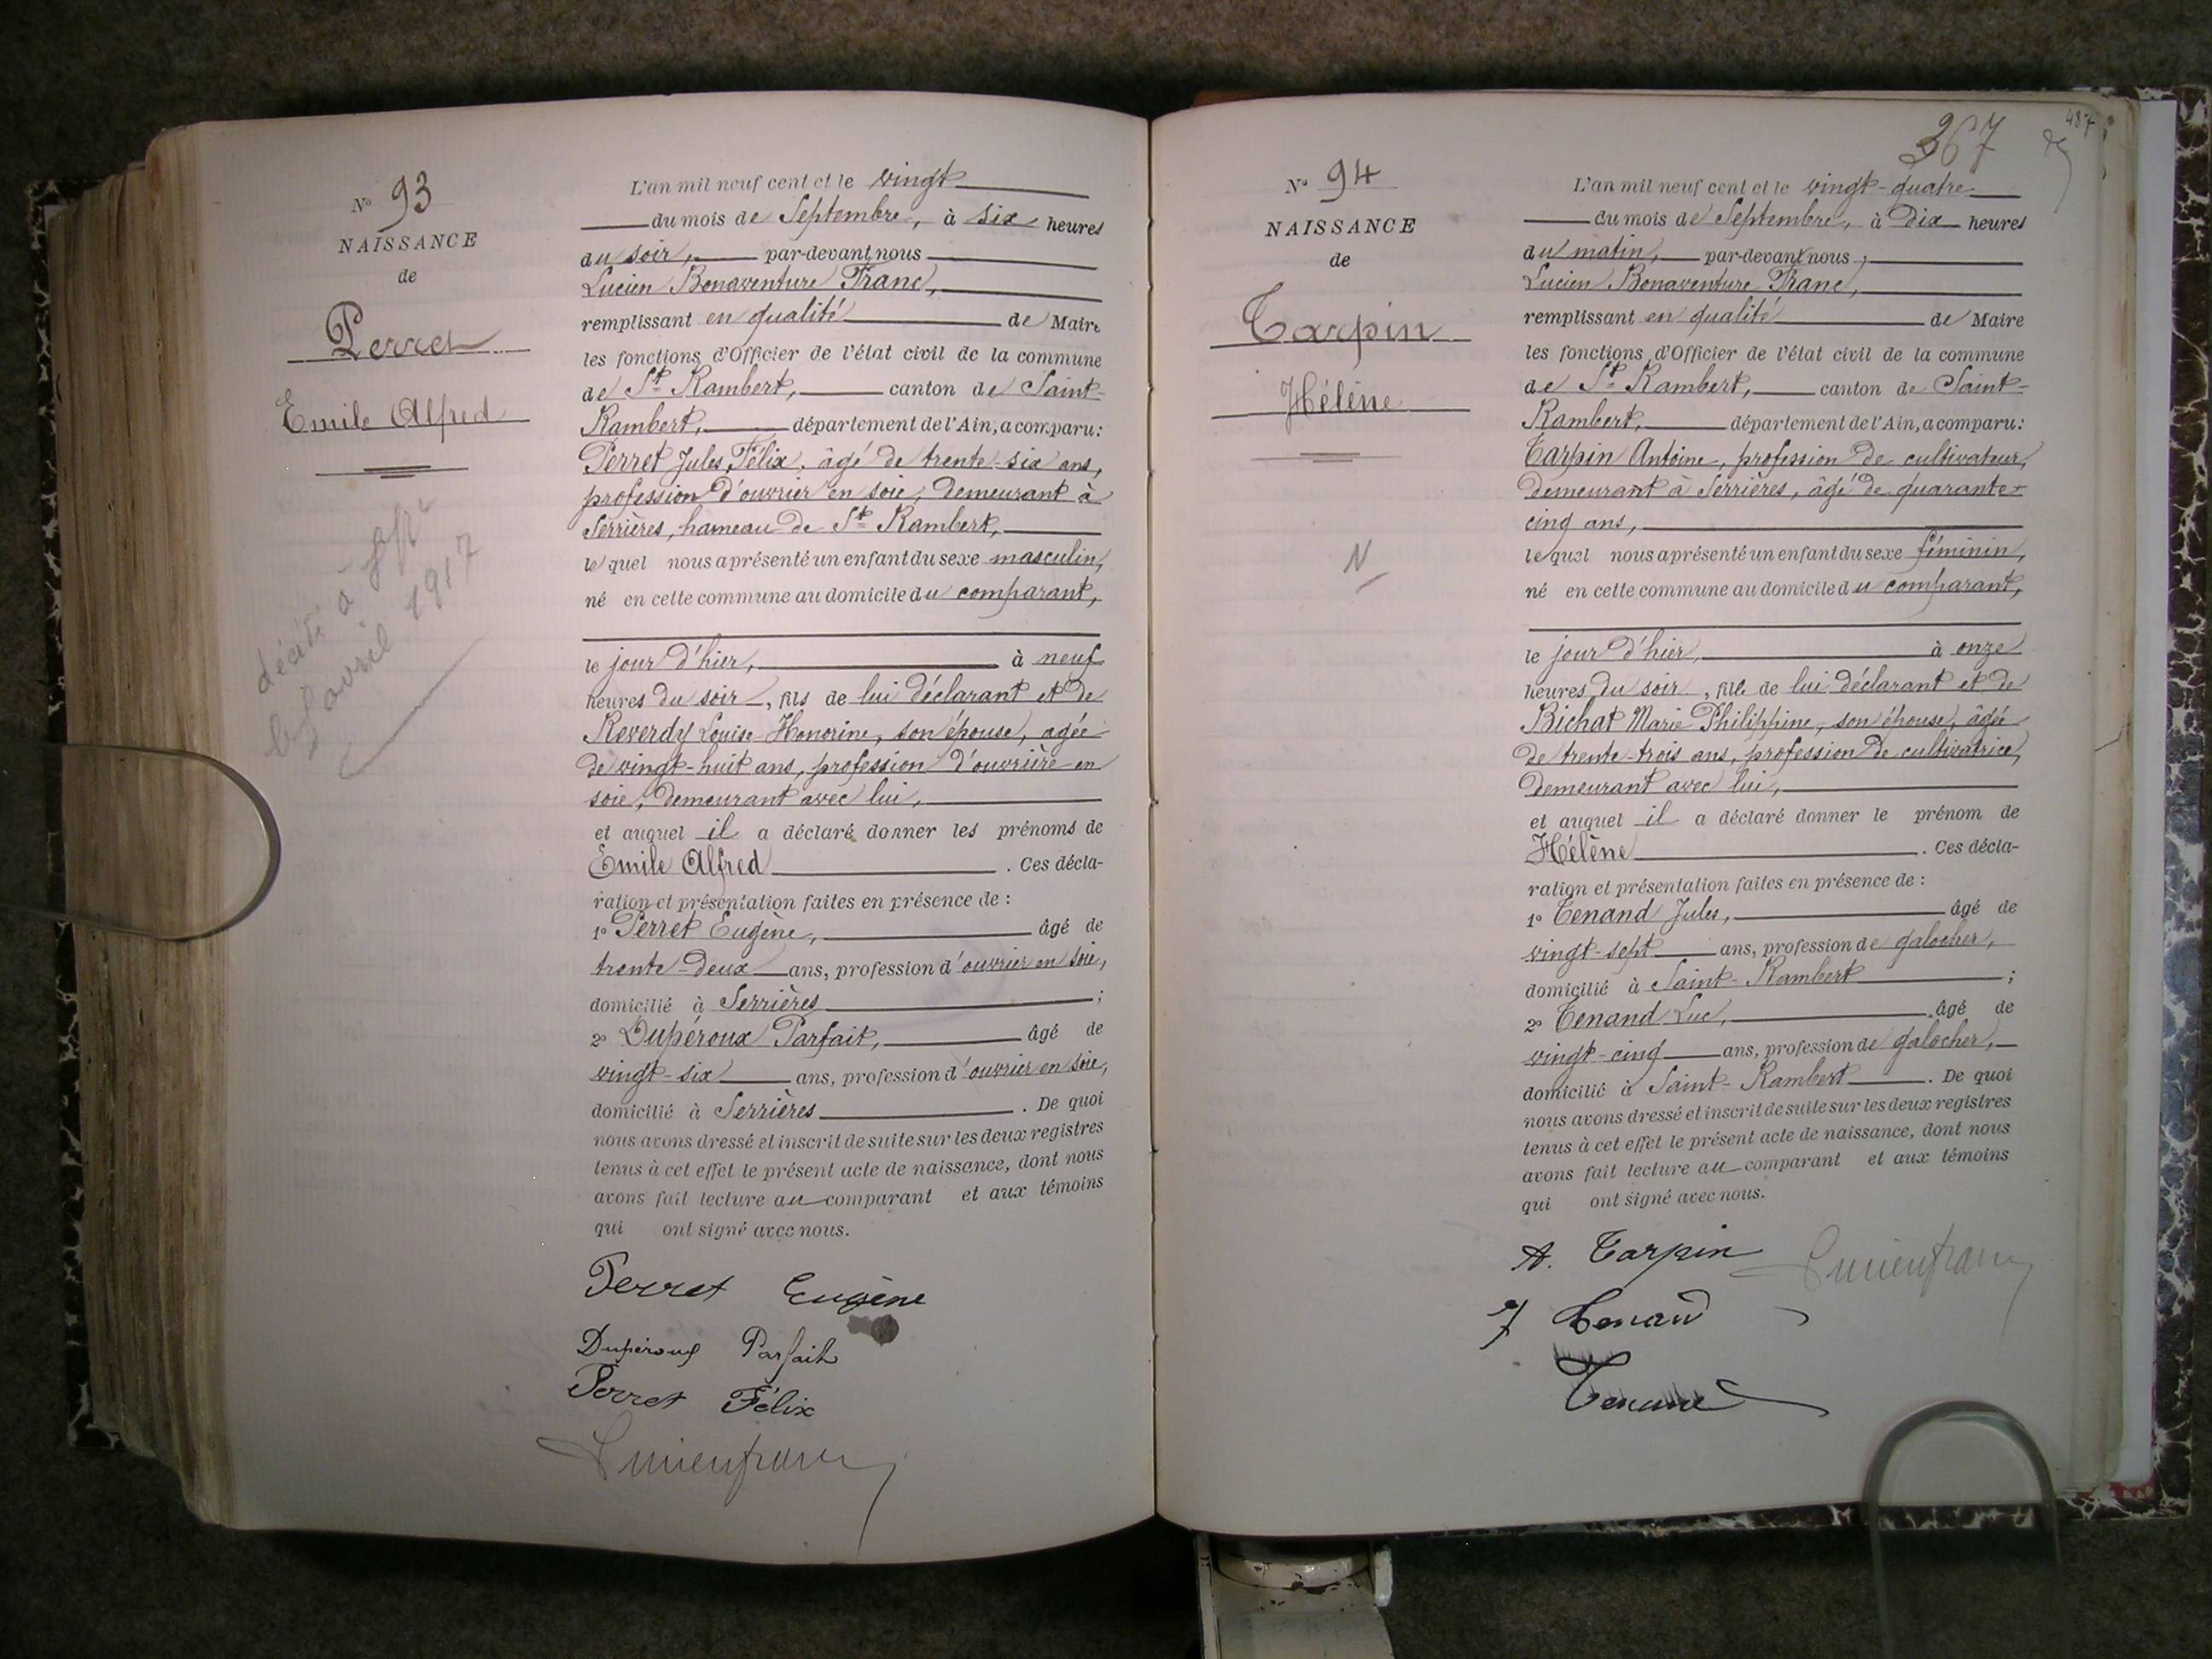 N° 93
NAISSANCE
de
Perret
Emile Alfred
décédé à
avril 1917
L'an mil neuf cent et le vingt
du mois de Septembre, à six heures
du soir, par-devant nous
Lucien Bonaventure Franc,
remplissant en qualité de Maire
les fonctions d'Officier de l'état civil de la commune
de St Rambert, canton de Saint-
Rambert, département de l'Ain, a comparu:
Perret Jules Félix, âgé de trente-six ans,
profession d'ouvrier en soie, demeurant à
Serrières, hameau de St Rambert,
lequel nous a présenté un enfant du sexe masculin,
né en cette commune au domicile du comparant,
le jour d'hier, à neuf
heures du soir, fils de lui déclarant et de
Reverdy Louise Honorine, son épouse, agée
de vingt-huit ans, profession d'ouvrière en
soie, demeurant avec lui,
et auquel il a déclaré donner les prénoms de
Emile Alfred. Ces décla-
ration et présentation faites en présence de :
1° Perret Eugène, âgé de
trente-deux ans, profession d'ouvrier en soie,
domicilié à Serrières ;
2° Dupéroux Parfait, âgé de
vingt-six ans, profession d'ouvrier en soie,
domicilié à Serrières. De quoi
nous avons dressé et inscrit de suite sur les deux registres
tenus à cet effet le présent acte de naissance, dont nous
avons fait lecture au comparant et aux témoins
qui ont signé avec nous.
Perret Eugène
Dupéroux Parfait
Perret Félix
Lucien franc
367
487
N° 94
NAISSANCE
de
Tarpin
Hélène
N
L'an mil neuf cent et le vingt-quatre
du mois de Septembre, à dix heures
du matin, par-devant nous,
Lucien Bonaventure Franc,
remplissant en qualité de Maire
les fonctions d'Officier de l'état civil de la commune
de St Rambert, canton de Saint-
Rambert, département de l'Ain, a comparu:
Tarpin Antoine, profession de cultivateur,
demeurant à Serrières, âgé de quarante-
cinq ans,
lequel nous a présenté un enfant du sexe féminin,
né en cette commune au domicile du comparant,
le jour d'hier, à onze
heures du soir, fille de lui déclarant et de
Bichat Marie Philippine, son épouse, âgée
de trente-trois ans, profession de cultivatrice,
demeurant avec lui,
et auquel il a déclaré donner le prénom de
Hélène. Ces décla-
ration et présentation faites en présence de :
1° Tenand Jules, âgé de
vingt-sept ans, profession de galocher,
domicilié à Saint-Rambert ;
2° Tenand Luc, âgé de
vingt-cinq ans, profession de galocher,
domicilié à Saint-Rambert. De quoi
nous avons dressé et inscrit de suite sur les deux registres
tenus à cet effet le présent acte de naissance, dont nous
avons fait lecture au comparant et aux témoins
qui ont signé avec nous.
A. Tarpin Lucien franc
J Tenand
Tenand